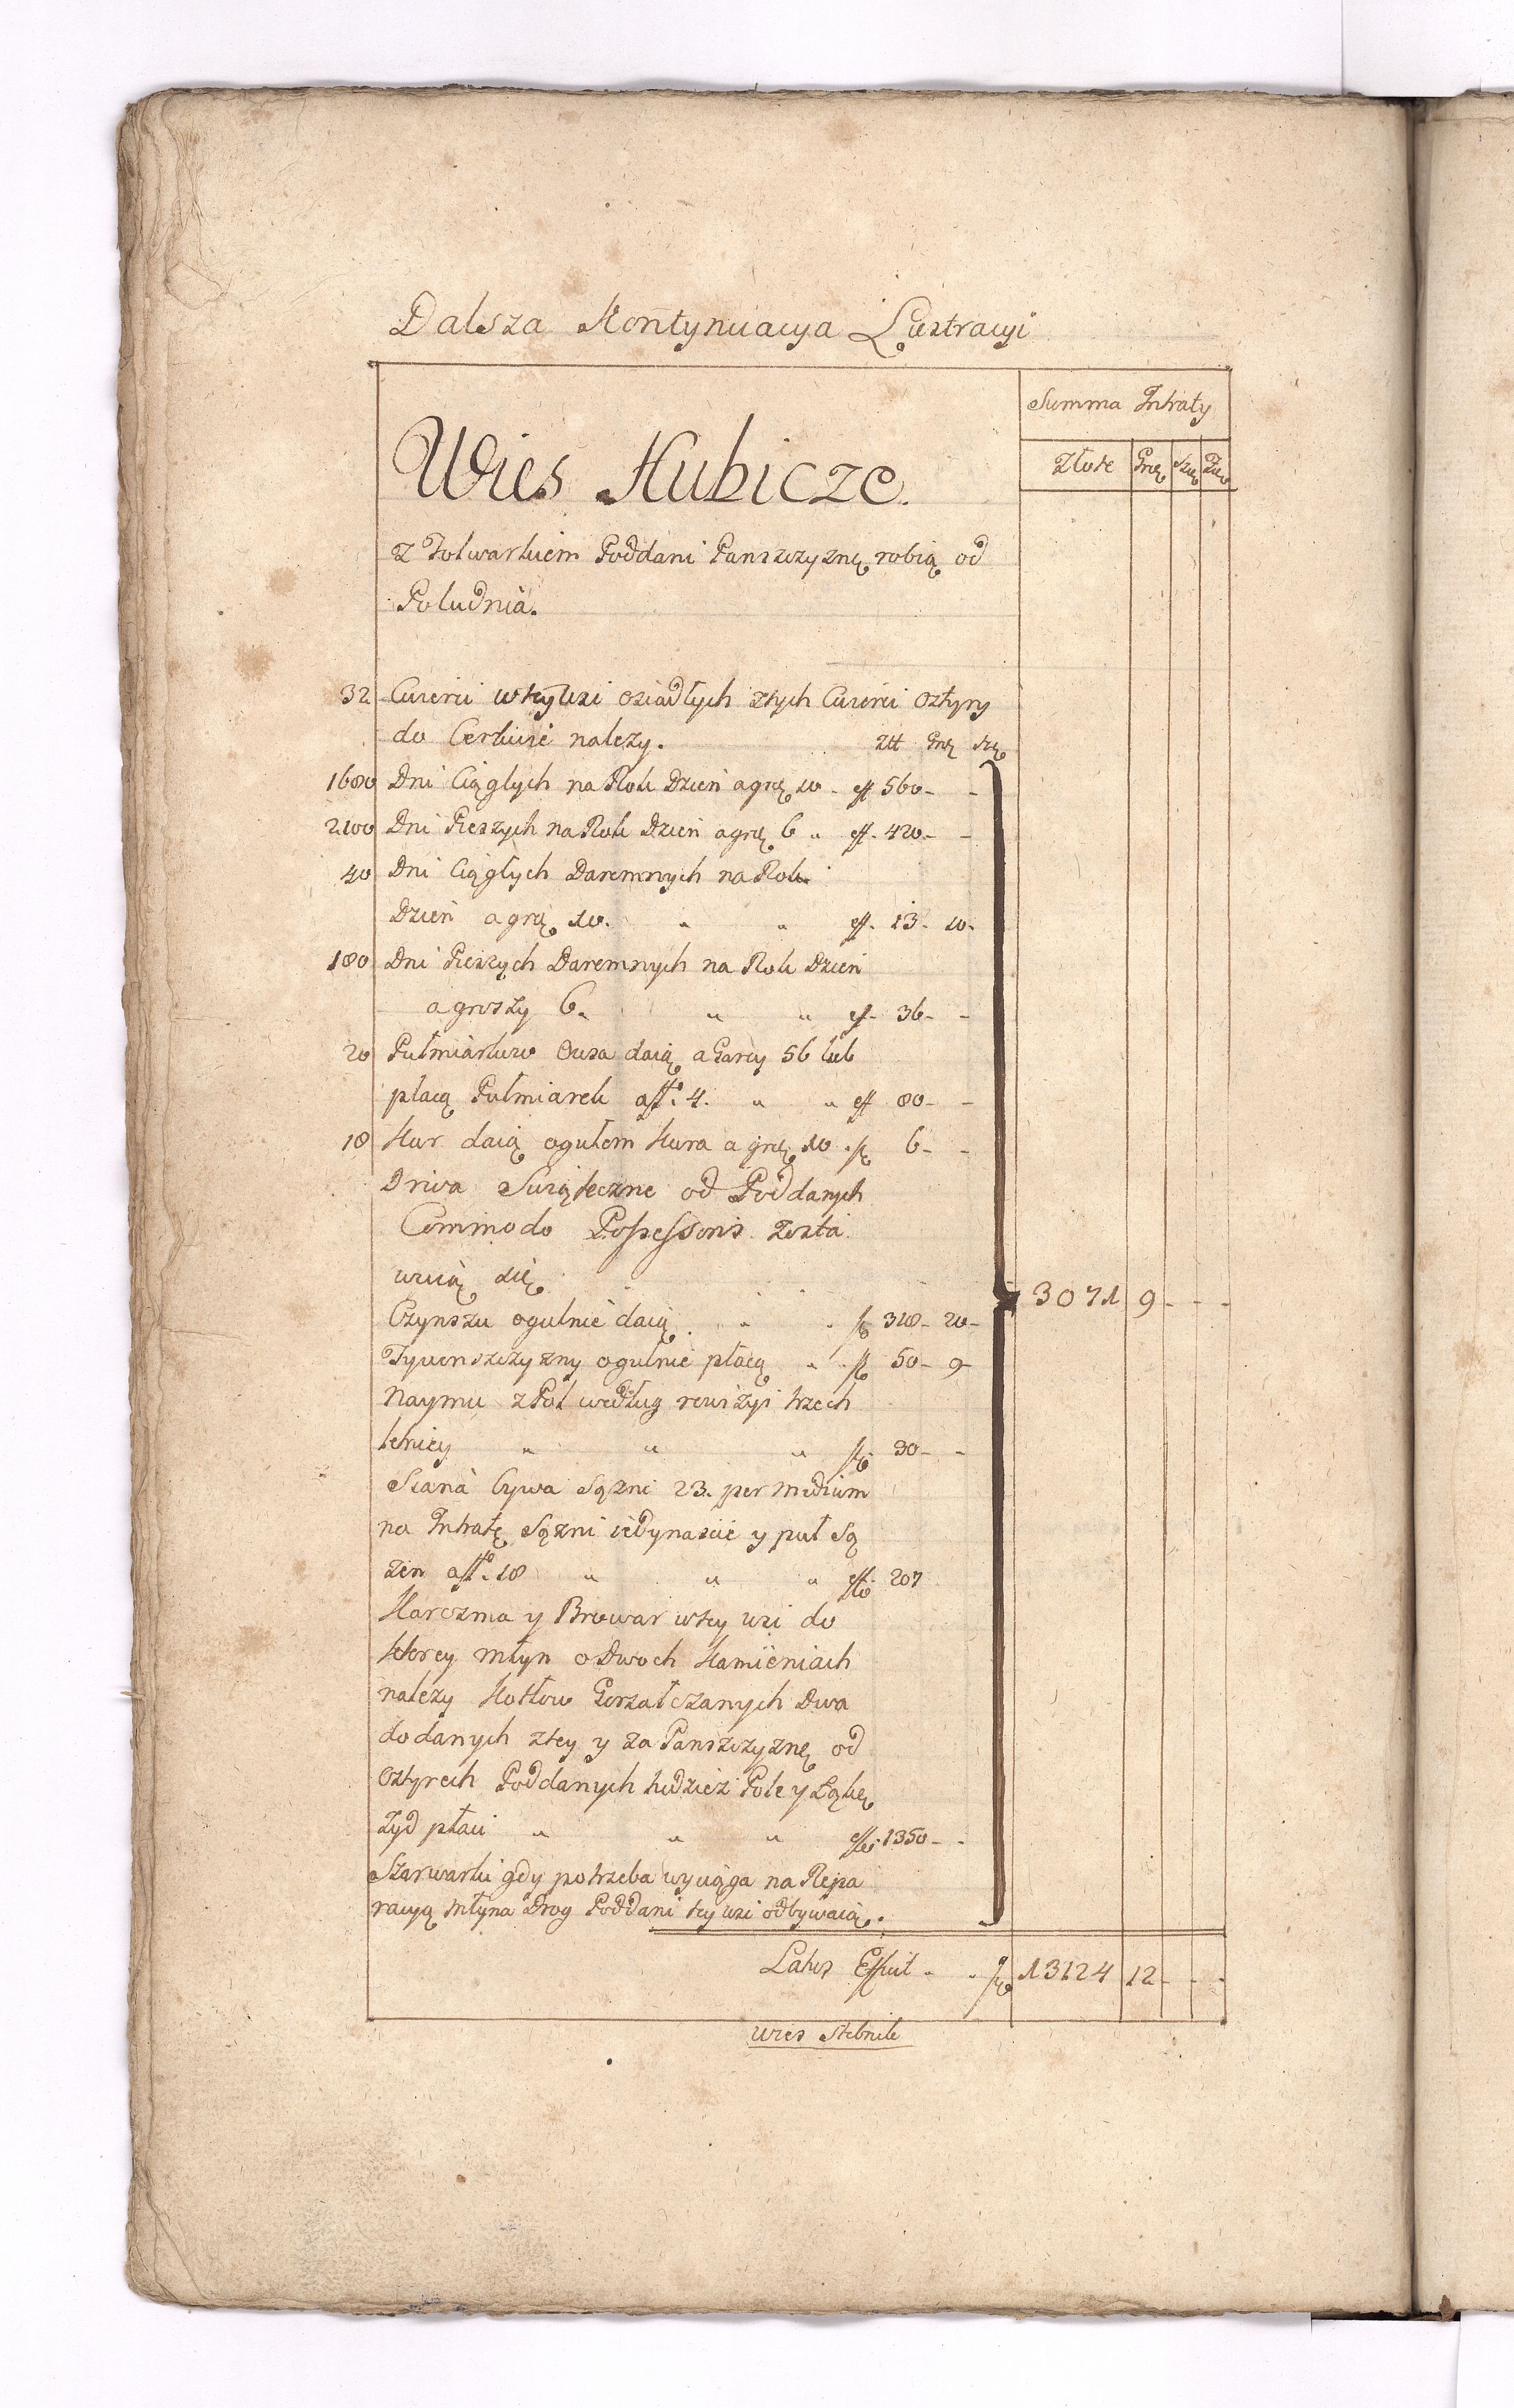 Dalsza Kontynuacya Lustracyi
Summa Intraty
Złote Grę Szę Zę
Wies Hubicze.
z Folwarkiem Poddani Panszczyznę robią od
Południa.
32 Cwierci wtey wsi osiadłych ztych Cwierci cztyry
do Cerkwie należy. Złt Grę Szę
1680 Dni Ciągłych na Rok Dzień a grę 10 - eff 560 - -
2100 Dni Pieszych na Rok Dzień a grę 6 " eff. 420 - -
40 Dni Ciągłych Daremnych na Rok
Dzień a grę 10. " " eff. 13 - 10 -
180 Dni Pieszych Daremnych na Rok Dzień
a groszy 6. " " eff - 36 - -
20 Pułmiarkow Owsa daią a Garcy 56 lub
płacą Pułmiarek a ff. 4. " " eff 80 - -
18 Kur daią ogułem Kura a grę 10 . 6 - -
Drwa Swiąteczne od Poddanych
Commodo Possessoris zosta
wuią się
Czynszu ogulnie daią " . 318 - 20 -
Tywonszczyzny ogulnie płacą " . 50 - 9 -
Naymu z Pol według rewizyi trzech
letniey " " " 30 - -
Siana bywa Sążni 23. per medium
na Intratę Sążni iedynascie y puł Są
żen a ff. 18 " " " 207
3071 9 - - -
Karczma y Browar wtey wsi do
ktorey młyn o Dwoch Kamieniach
należy Kotłow Gorzałczanych Dwa
dodanych ztey y za Panszczyznę od
cztyrech Poddanych tudzież Pole y Łąkę
Żyd płaci " " " 1350 - -
Szarwarki gdy potrzeba wyciąga na Repa
racyą Młyna Drog Poddani tey wsi odbywaią.
Latus Efficit - . 13124 12 - - -
Wies Stebnik